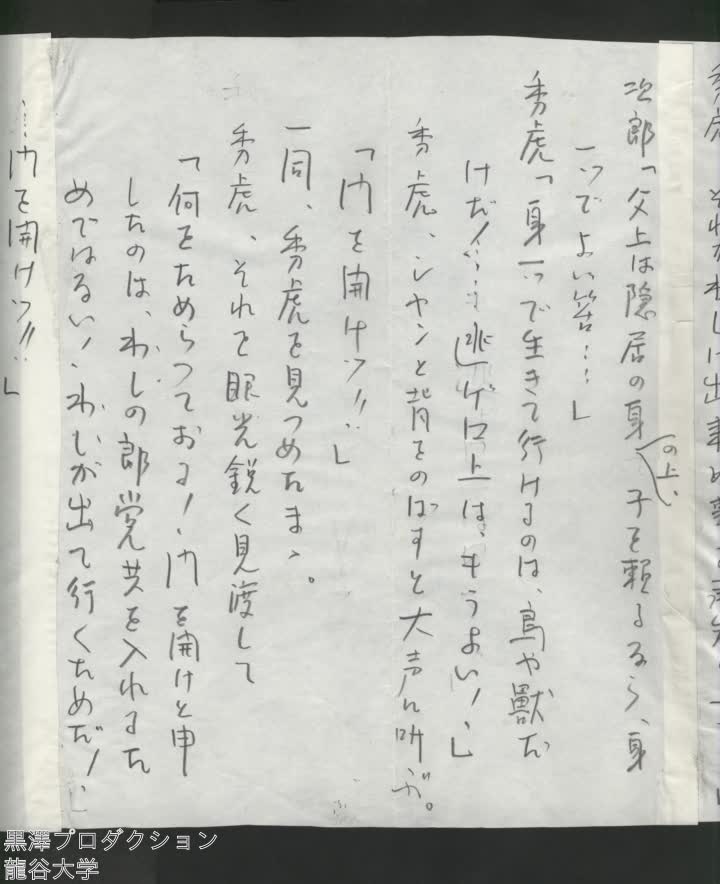 次郎「父上は隠居の身の上、子を頼るなら、身
一つでよい筈……」
秀虎「身一つで生きて行けるのは、鳥や獣だ
けだ！……逃げ口上は、もうよい！」
秀虎、シャンと背をのばすと大声に叫ぶ。
「門を開けッ!!」
一同、秀虎を見つめたまゝ。
秀虎、それを眼光鋭く見渡して
「何をためらっておる！門を開けと申
したのは、わしの郎党共を入れるた
めではない！わしが出て行くためだ！」
……門を開けッ!!」
黒澤プロダクション
龍谷大学